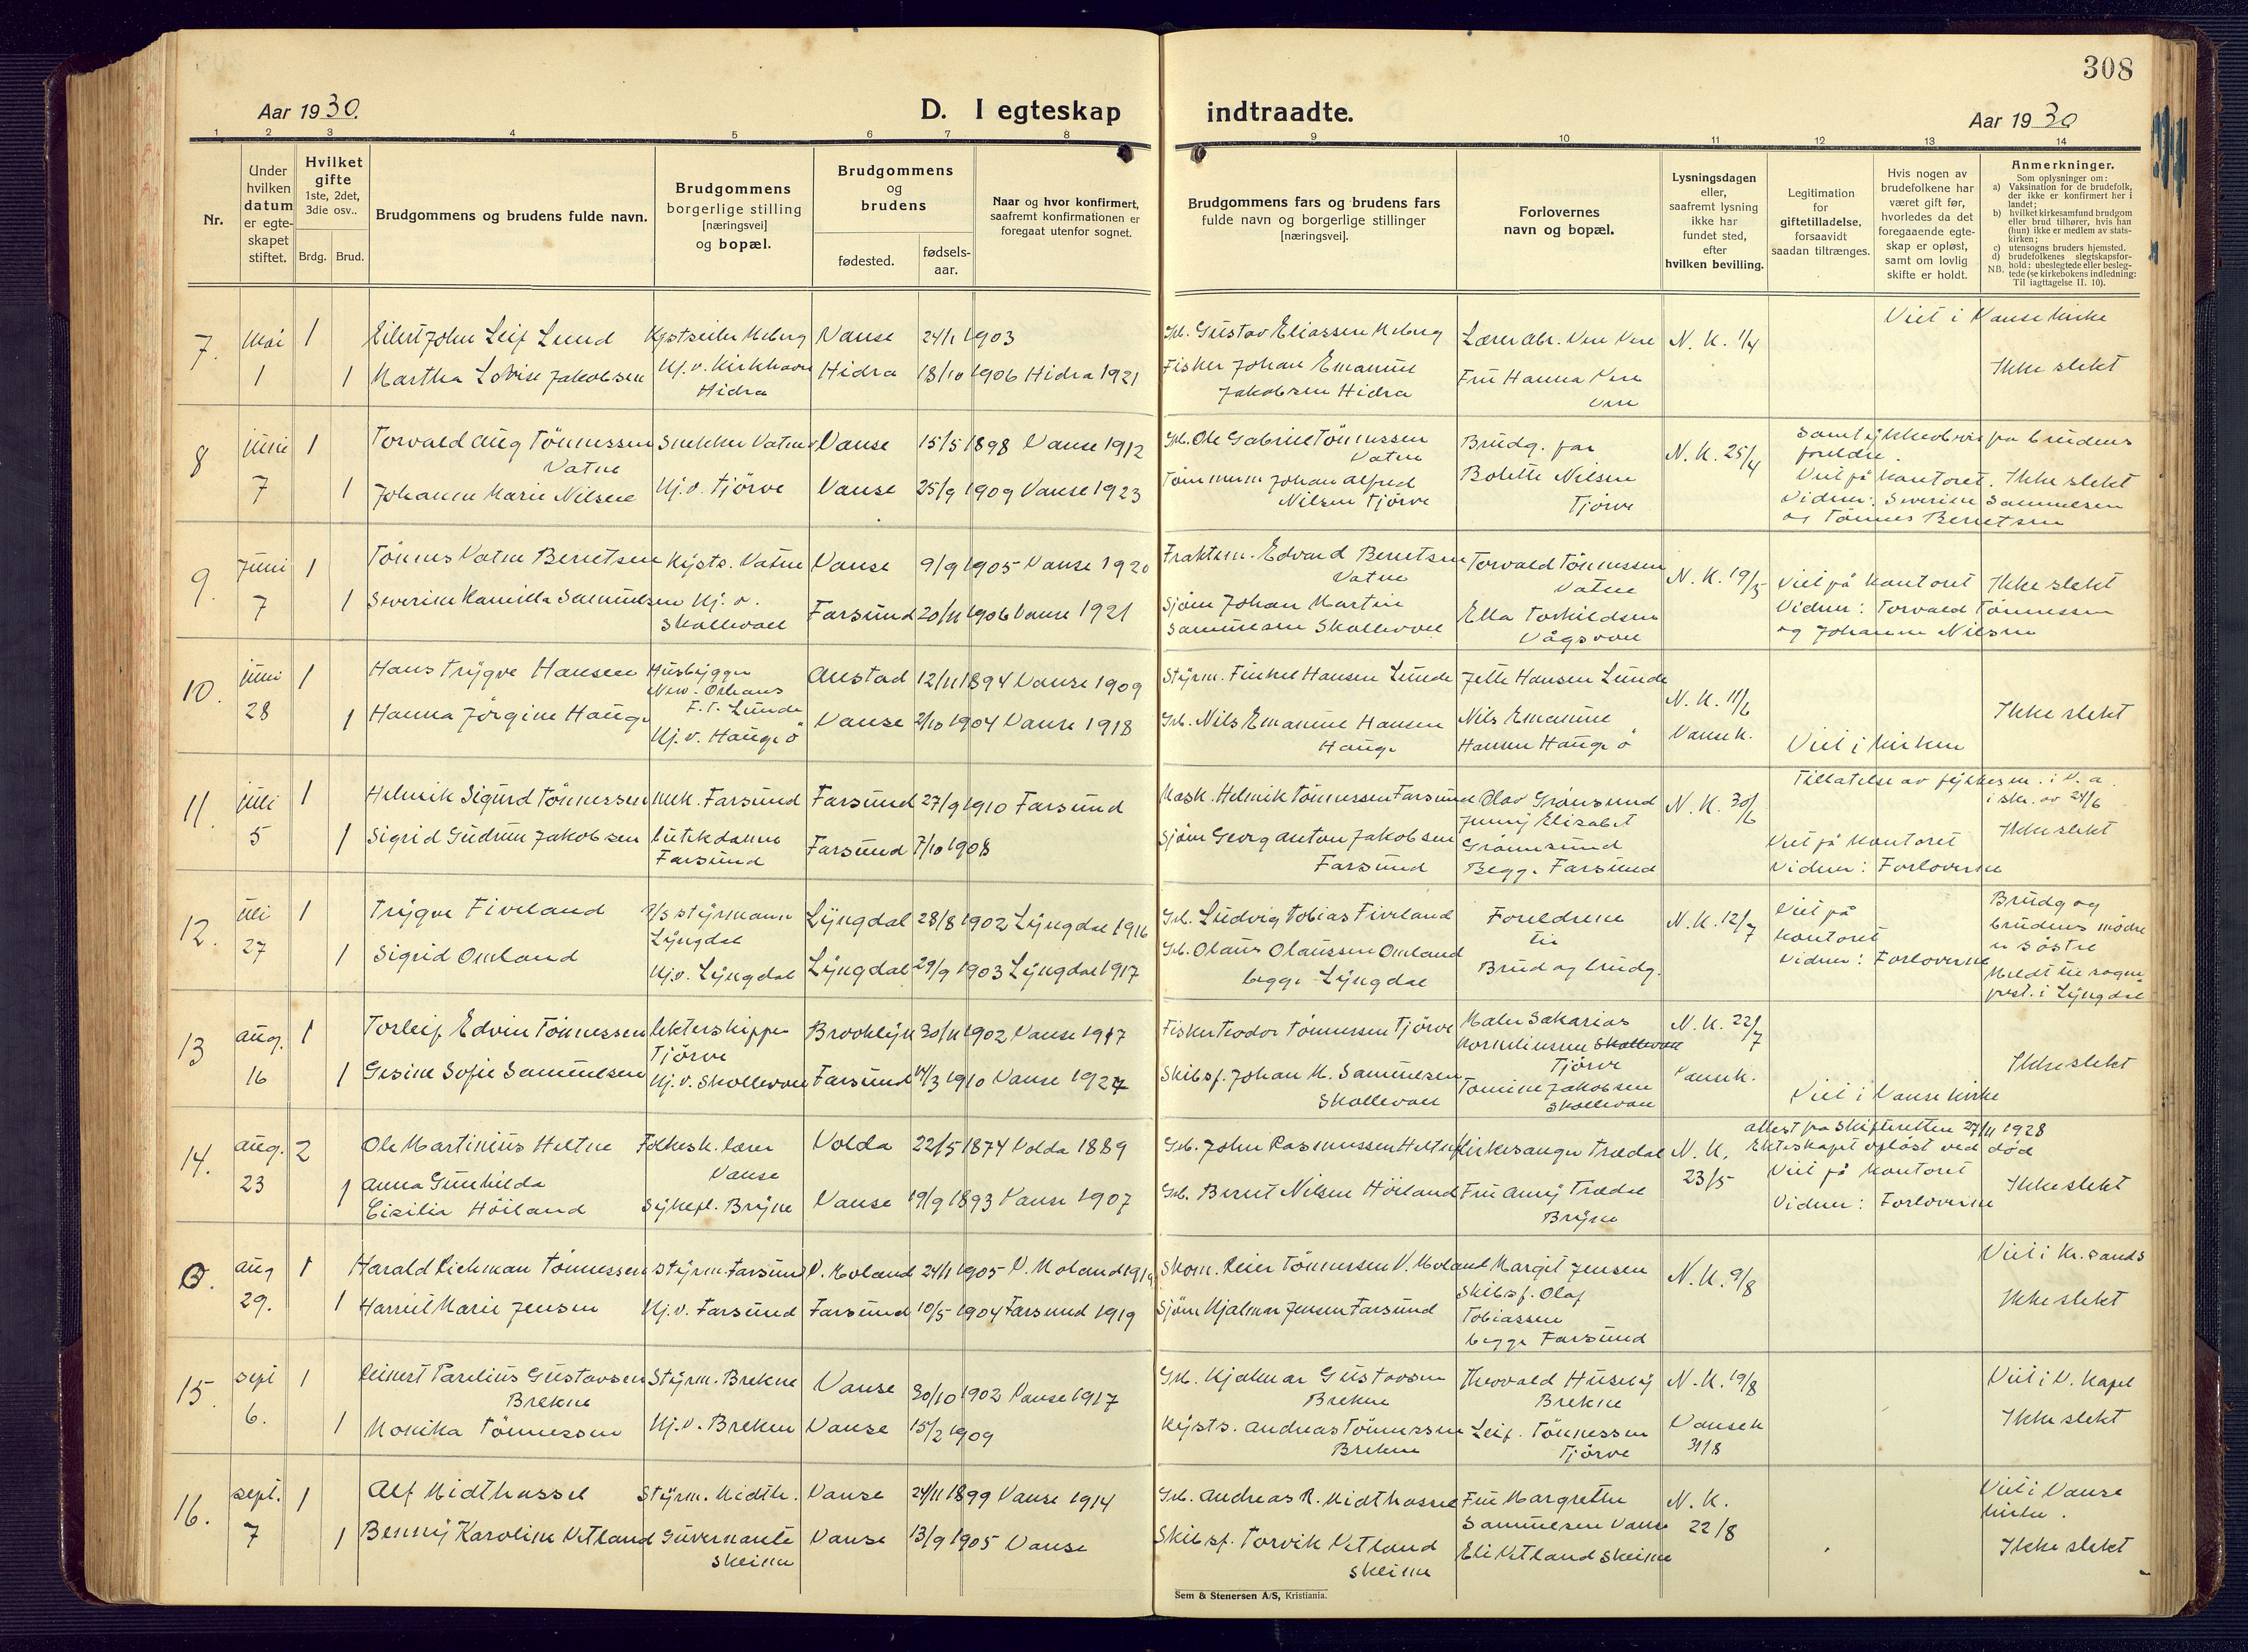 308
Aar 1930.
D. I egteskap indtraadte.
Aar 1930
1 2 3 4 5 6 7 8 9 10 11 12 13 14
Nr.
Under hvilken datum er egte-skapet stiftet.
Hvilket gifte
1ste, 2det, 3die osv..
Brdg. Brud.
Brudgommens og brudens fulde navn.
Brudgommens borgerlige stilling [næringsvei] og bopæl.
Brudgommens og brudens
fødested.
fødsels-aar.
Naar og hvor konfirmert, saafremt konfirmationen er foregaat utenfor sognet.
Brudgommens fars og brudens fars fulde navn og borgerlige stillinger [næringsvei].
Forlovernes navn og bopæl.
Lysningsdagen eller, saafremt lysning ikke har fundet sted, efter hvilken bevilling.
Legitimation for giftetilladelse, forsaavidt saadan tiltrænges.
Hvis nogen av brudefolkene har været gift før, hvorledes da det foregaaende egte-skap er opløst, samt om lovlig skifte er holdt.
Anmerkninger.
Som oplysninger om:
a) Vaksination for de brudefolk, der ikke er konfirmert her i landet;
b) hvilket kirkesamfund brudgom eller brud tilhører, hvis han (hun) ikke er medlem av stats-kirken;
c) utensogns bruders hjemsted.
d) brudefolkenes slegtskapsfor-hold: ubeslegtede eller besleg-tede (se kirkebokens indledning: Til iagttagelse II. 10).
NB.
7. Mai 1 Eilert John Leif Lund Kystseiler Meberg Vanse 24/1 1903 Grb. Gustav Eliassen Meberg Lærer Abr. Vere Vere N. K. 1/4 Viet i Vanse kirke
1 1 Martha Lovise Jakobsen Hj. v. Kirkhavn Hidra Hidra 18/10 1906 Hidra 1921 Fisker Johan Emanuel Jakobsen Hidra Fru Hanna Vere Vere Ikke slekt
8 juni 1 Torvald Aug Tönnessen Vatne Snekker Vatne Vanse 15/5 1898 Vanse 1912 Grb. Ole Gabriel Tönnessen Vatne Brudg. far N. K. 25/4 Samtykkebevis fra brudens foreldre.
7 1 Johanne Marie Nilsen Hj. v. Tjörve Vanse 25/9 1909 Vanse 1923 Tömmerm Johan Alfred Nilsen Tjörve Bolette Nilsen Tjörve Viet på kontoret. Ikke slekt
Vidner: Severine Samuelsen og Tönnes Berntsen
9. Juni 1 Tönnes Vatne Berntsen Kysts. Vatne Vanse 9/9 1905 Vanse 1920 Fraktem. Edvard Berntsen Vatne Torvald Tönnessen Vatne N. K. 19/5 Viet på kontoret Ikke slekt
7 1 Severine Kamilla Samuelsen Hj. v. Skollevoll Farsund 20/11 1906 Vanse 1921 Sjöm Johan Martin Samuelsen Skollevoll Ella Torkildsen Vågsvoll Vidner: Torvald Tönnessen og Johanne Nilsen
10. juni 1 Hans Trygve Hansen Husbygger New-Orleans F.t. Lunde Austad 12/11 1894 Vanse 1909 Styrm. Finkel Hansen Lunde Jette Hansen Lunde N. K. 11/6
28 1 Hanna Jörgine Hauge Hj. v. Hauge ö Vanse 2/10 1904 Vanse 1918 Grb. Nils Emanuel Hansen Hauge Nils Emanuel Hansen Hauge ö Vanse k. Viet i kirken Ikke slekt
11. juli 1 Helmik Sigurd Tönnessen mek. Farsund Farsund 27/9 1910 Farsund Mask. Helmik Tönnessen Farsund Olav Grönsund N. K. 30/6 Tillatelse av fylkesm. i V.A. i skr. av 24/6
5 1 Sigrid Gudrun Jakobsen butikdame Farsund Farsund 7/10 1908 Sjöm Georg Anton Jakobsen Farsund Jenny Elisabet Grönnsund Begge Farsund Viet på kontoret Vidner: Forloverne Ikke slekt
12. juli 1 Trygve Fiveland styrmann Lyngdal Lyngdal 28/8 1902 Lyngdal 1916 Grb. Ludvig Tobias Fiveland Foreldrene til Brud og brudg. N. K. 12/7 Viet på kontoret Vidner: Forloverne Brudg og brudens mødre er søstre
27 1 Sigrid Omland Hj. v. Lyngdal Lyngdal 29/9 1903 Lyngdal 1917 Grb. Olaus Olaussen Omland begge Lyngdal Meldt til sogneprest. i Lyngdal
13 aug. 1 Torleif Edvin Tönnessen lekterskipper Tjörve Brooklyn 30/11 1902 Vanse 1917 Fisker Teodor Tönnessen Tjörve Maler Sakarias Korneliussen Skollevoll Tjörve N. K. 22/7
16 1 Gesine Sofie Samuelsen Hj. v. Skollevoll Farsund 14/3 1910 Vanse 1924 Skibsf. Johan M. Samuelsen Skollevoll Tomine Jakobsen Skollevoll Vanse k. Viet i Vanse kirke Ikke slekt
14. aug. 2 Ole Martinius Heltne Folkesk. lærer Vanse Volda 22/5 1874 Volda 1889 Grb. John Rasmussen Heltne Kirkesanger Trædal N. K. 23/5 Attest fra skifteretten 27/11 1928 Ekteskapet opløst ved død
23 1 Anna Gunhilda Cisilia Höiland Sykepl. Bryne Vanse 19/9 1893 Vanse 1907 Grb. Bernt Nilsen Höiland Fru Amy Trædal Bryne Viet på kontoret Vidner: Forloverne Ikke slekt
aug 1 Harald Richman Tönnessen Styrm. Farsund V. Moland 24/1 1905 V. Moland 1919 Skom. Reier Tönnessen V. Moland Margit Jensen N. K. 9/8 Viet i Kr.sands
29. 1 Harriet Marie Jensen Hj. v. Farsund Farsund 10/5 1904 Farsund 1919 Sjöm Hjalmar Jensen Farsund Skibsf. Olaf Tobiassen begge Farsund Ikke slekt
15. sept 1 Reinert Parelius Gustavsen Brekne Styrm. Brekne Vanse 30/10 1902 Vanse 1917 Grb. Hjalmar Gustavsen Brekne Theovald Huseby Brekne N. K. 19/8 Viet i V. Kapel
6. 1 Monika Tönnessen Hj. v. Brekne Vanse 15/2 1909 Kysts. Andreas Tönnessen Brekne Leif Tönnessen Tjörve Vanse k 31/8 Ikke slekt
16. sept. 1 Alf Midthassel Styrm. Midth. Vanse 24/11 1899 Vanse 1914 Grb. Andreas R. Midthassel Fru Margrethe Samuelsen Vanse N. K. 22/8 Viet i Vanse kirke.
7 1 Benny Karoline Vetland Guvernante Skeime Vanse 13/9 1905 Vanse Skibsf. Torvik Vetland Skeime Eli Vetland Skeime Ikke slekt
Sem & Stenersen A/S, Kristiania.